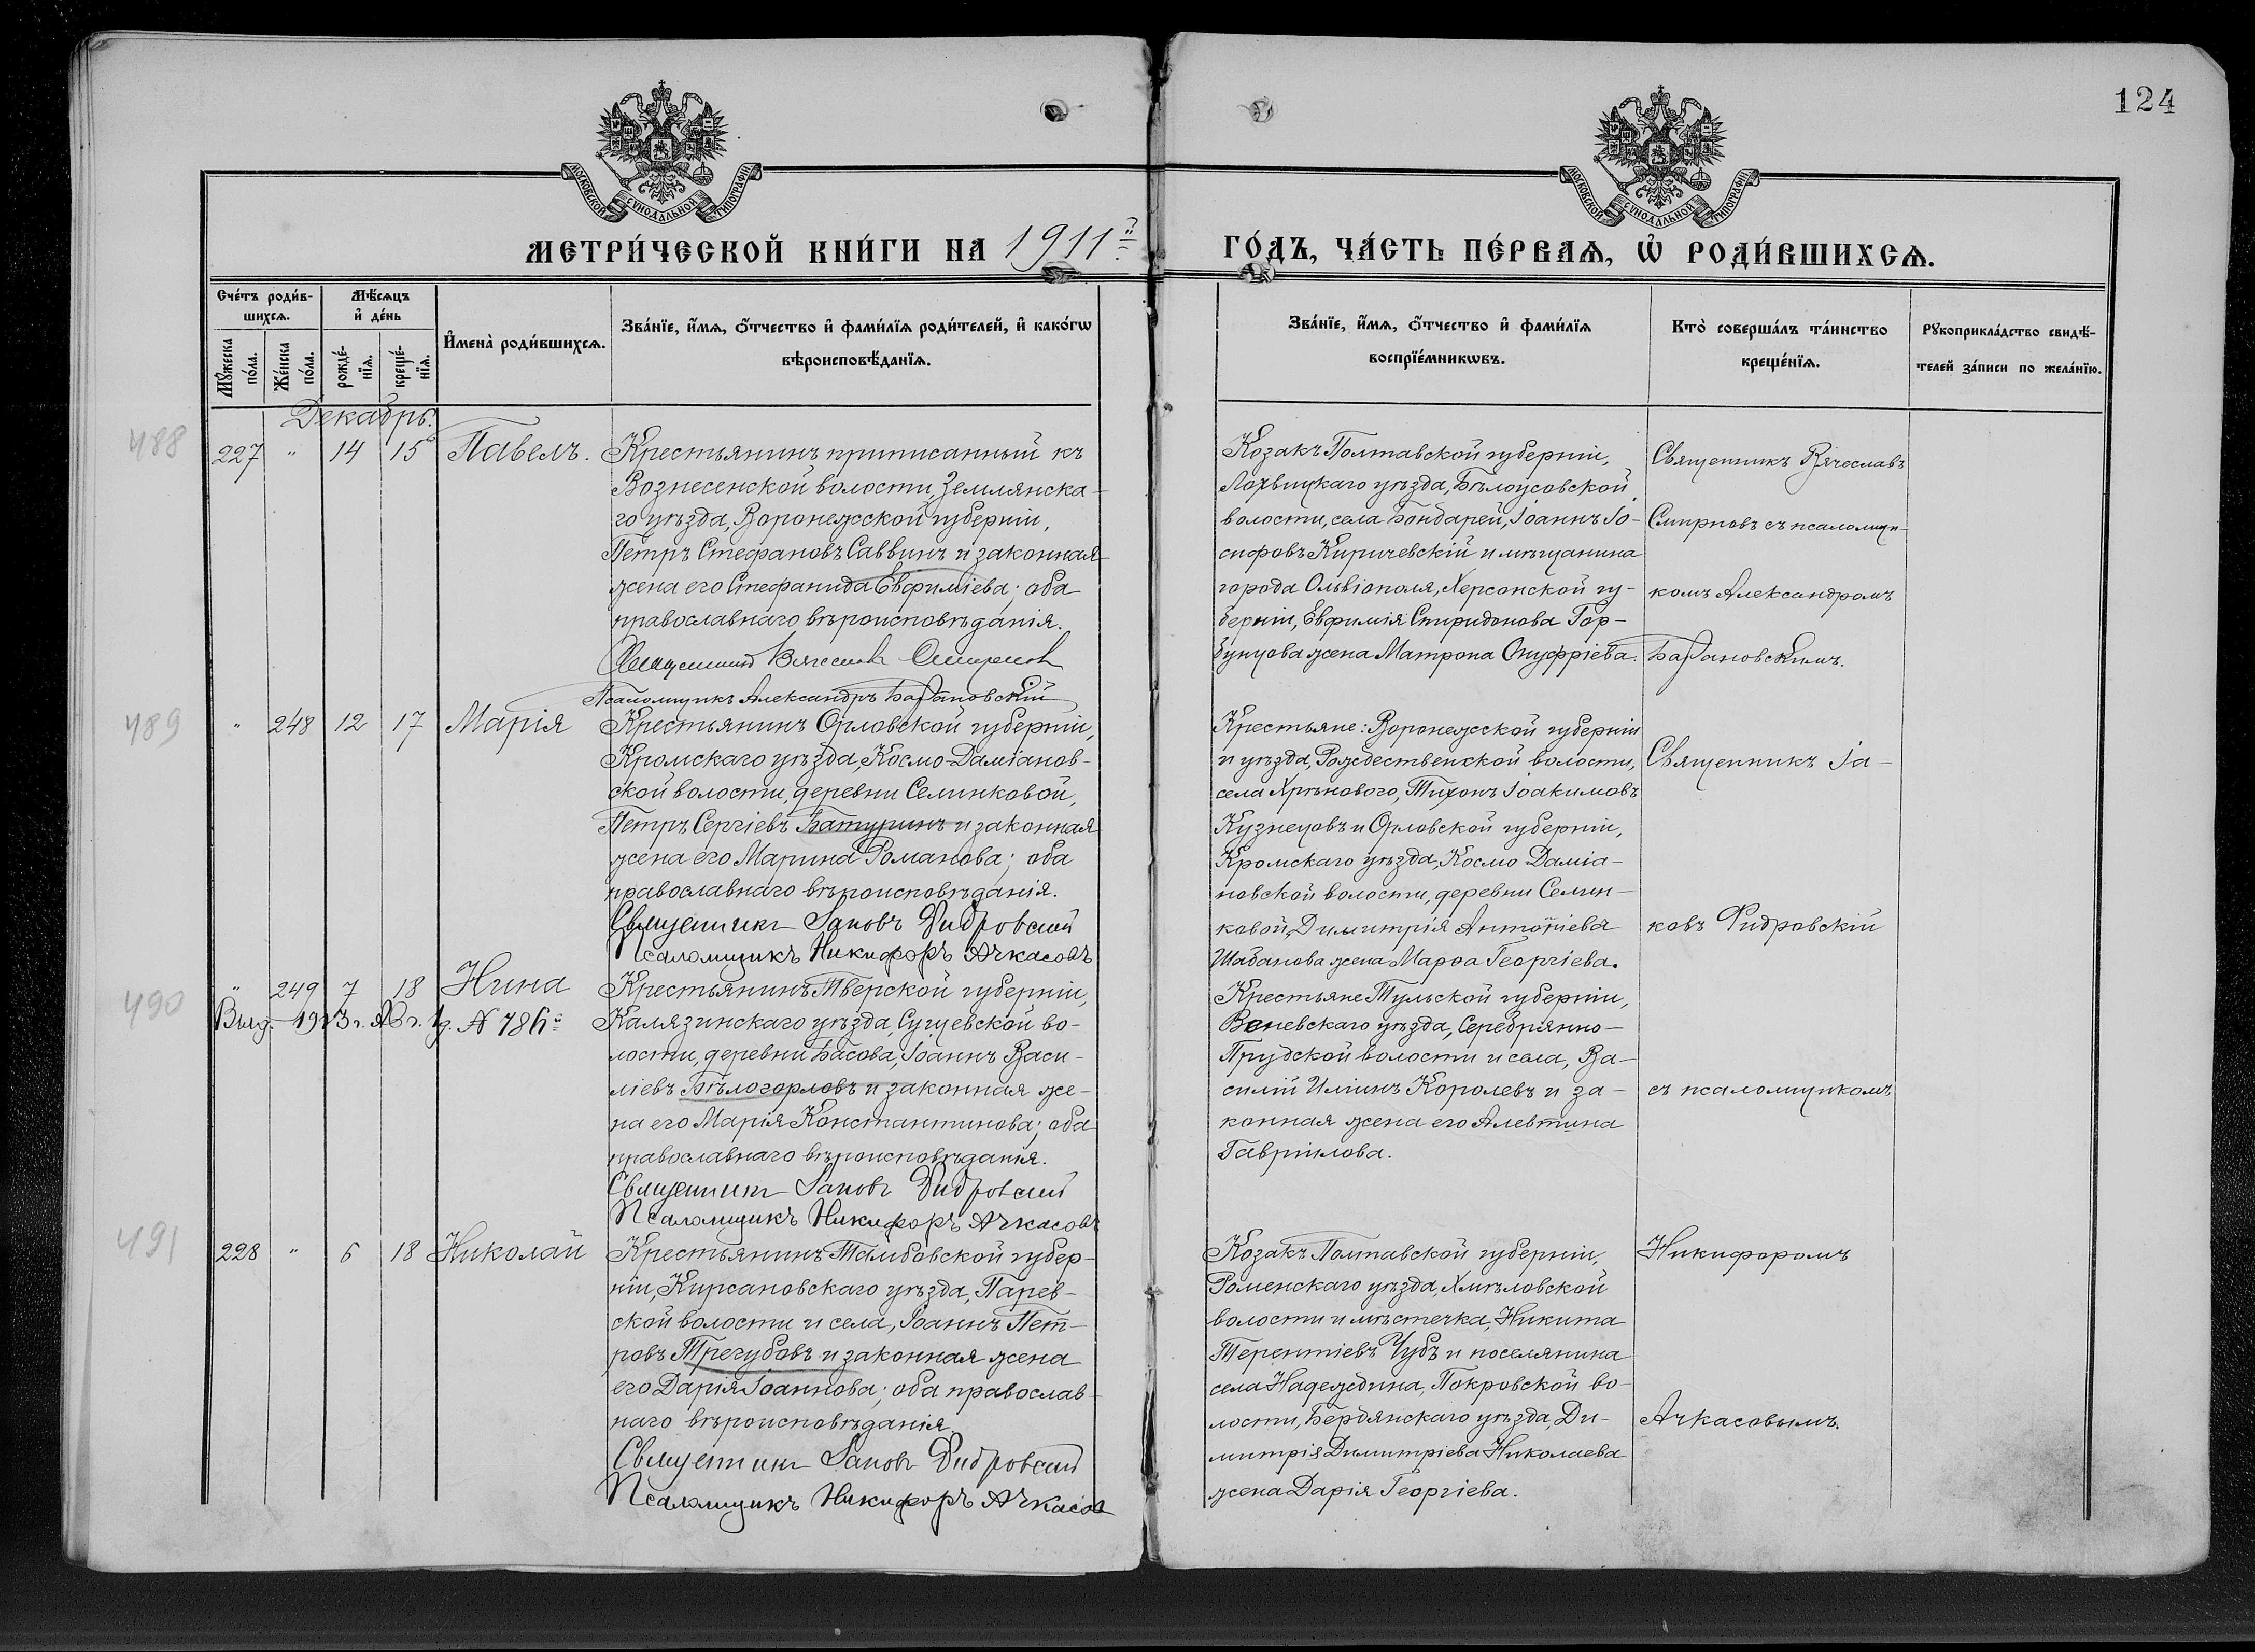 124
МОСКОВСКОЙ СУНОДАЛЬНОЙ ТИПОГРАФІИ
МОСКОВСКОЙ СУНОДАЛЬНОЙ ТИПОГРАФІИ
МЕТРИ́ЧЕСКОЙ КНИ́ГИ НА 1911й
ГО́ДЪ, ЧА́СТЬ ПЕ́РВАѦ, Ѡ҆ РОДИ́ВШИХСѦ.
Сче́тъ роди́в-
шихсѧ.
Мѣ́сѧцъ
и҆ де́нь
Мꙋ́жеска по́ла.
Же́нска по́ла.
рожде́-
нїѧ.
креще́-
нїѧ.
И҆мена̀ роди́вшихсѧ.
Зва́нїе, и҆́мѧ, ѻ҆́тчество и҆ фами́лїѧ роди́телей, и҆ како́гѡ
вѣроисповѣ́данїѧ.
Зва́нїе, и҆́мѧ, ѻ҆́тчество и҆ фами́лїѧ
воспрїе́мникѡвъ.
Кто̀ соверша́лъ та́инство
креще́нїѧ.
Рꙋкоприкла́дство свидѣ́-
телей за́писи по жела́нїю.
Декабрь.
488
227 " 14 15 Павелъ.
Крестьянинъ приписанный къ
Вознесенской волости, Землянска-
го уѣзда, Воронежской губерніи,
Петръ Стефановъ Саввинъ и законная
жена его Стефанида Евфиміева; оба
православнаго вѣроисповѣданія.
Священникъ Вячеславъ Смирновъ
Псаломщикъ Александръ Барановскій
Козакъ Полтавской губерніи,
Лохвицкаго уѣзда, Бѣлоусовской
волости, села Бондарей, Іоаннъ Іо-
сифовъ Киричевскій и мѣщанина
города Ольвіополя, Херсонской гу-
берніи, Евфимія Спиридонова Гор-
бунцова жена Матрона Онуфріева.
Священникъ Вячеславъ
Смирновъ съ псаломщи-
комъ Александромъ
Барановскимъ.
489
" 248 12 17 Марія
Крестьянинъ Орловской губерніи,
Кромскаго уѣзда, Космо-Даміанов-
ской волости, деревни Селинковой,
Петръ Сергіевъ Батуринъ и законная
жена его Марина Романова; оба
православнаго вѣроисповѣданія.
Священникъ Іаковъ Фидровскій
Псаломщикъ Никифоръ Ачкасовъ
Крестьяне: Воронежской губерніи
и уѣзда, Рождественской волости,
села Хрѣнового, Тихонъ Іоакимовъ
Кузнецовъ и Орловской губерніи,
Кромскаго уѣзда, Космо Даміа-
новской волости, деревни Селин-
ковой, Димитрія Антоніева
Шабанова жена Марѳа Георгіева.
Священникъ Іа-
ковъ Фидровскій
490
" 249 7 18 Нина
Выд. 1923 г. № 786
Крестьянинъ Тверской губерніи,
Калязинскаго уѣзда, Сущевской во-
лости, деревни Басова, Іоаннъ Васи-
ліевъ Бѣлогорловъ и законная же-
на его Марія Константинова; оба
православнаго вѣроисповѣданія.
Священникъ Іаковъ Фидровскій
Псаломщикъ Никифоръ Ачкасовъ
Крестьяне Тульской губерніи,
Веневскаго уѣзда, Серебрянно-
Прудской волости и села, Ва-
силій Иліинъ Королевъ и за-
конная жена его Алевтина
Гавріилова.
съ псаломщикомъ
491
228 " 6 18 Николай
Крестьянинъ Тамбовской губер-
ніи, Кирсановскаго уѣзда, Парев-
ской волости и села, Іоаннъ Пет-
ровъ Трегубовъ и законная жена
его Дарія Іоаннова; оба православ-
наго вѣроисповѣданія.
Священникъ Іаковъ Фидровскій
Псаломщикъ Никифоръ Ачкасов
Козакъ Полтавской губерніи,
Роменскаго уѣзда, Хмѣловской
волости и мѣстечка, Никита
Терентіевъ Чубъ и поселянина
села Надеждина, Покровской во-
лости, Бердянскаго уѣзда, Ди-
митрія Димитріева Николаева
жена Дарія Георгіева.
Никифоромъ
Ачкасовымъ.